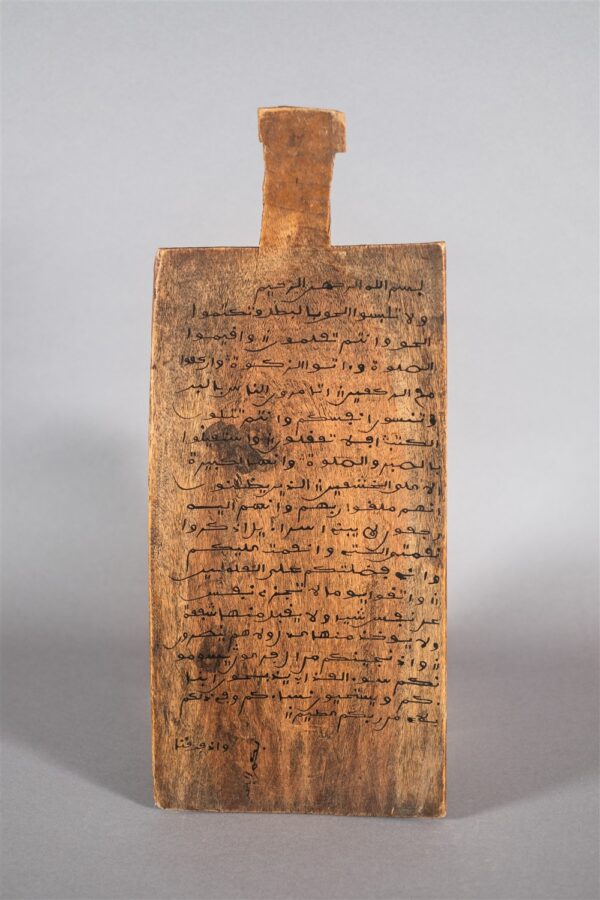 بسم الله الرحمن الرحيم
ولا تلبسوا الحق بالبطل وتكتموا
الحق وانتم تعلمون واقيموا
الصلوة وءاتوا الزكوة واركعوا
مع الركعين اتامرون الناس بالبر
وتنسون انفسكم وانتم تتلون
الكتب افلا تعقلون واستعينوا
بالصبر والصلوة وانها لكبيرة
الا على الخشعين الذين يظنون
انهم ملقوا ربهم وانهم اليه
رجعون يبني اسراءيل اذكروا
نعمتي التي انعمت عليكم
واني فضلتكم على العلمين
واتقوا يوما لا تجزي نفس
عن نفس شيا ولا يقبل منها شفعة
ولا يوخذ منها عدل ولا هم ينصرون
واذ نجينكم من ال فرعون يسومو
نكم سوء العذاب يذبحون ابنا
ءكم ويستحيون نساءكم وفي ذلكم
بلاء من ربكم عظيم
واذ فرقنا
بكم